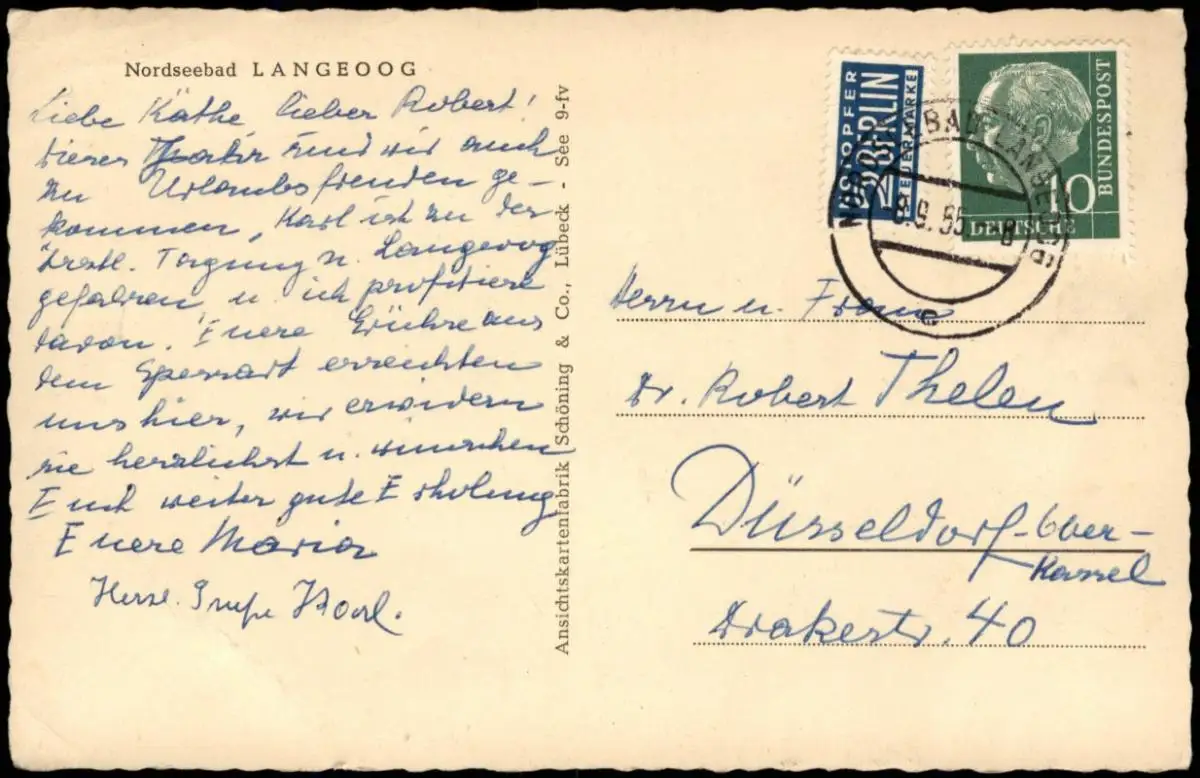 Nordseebad LANGEOOG
Liebe Käthe lieber Robert!
dieses sind wir auch
zu Urlaubsfreuden ge-
kommen, Karl ist zu der
ärztl. Tagung n. Langeoog
gefahren u. ich profitiere
davon. Euere Grüsse aus
dem Spessart erreichten
uns hier, wir erwidern
sie herzlichst u. wünschen
Euch weiter gute Erholung
Euere Maria
Herzl. Grüße Karl.
Ansichtskartenfabrik Schöning & Co., Lübeck - See 9-fv
NOTOPFER
2 BERLIN
STEUERMARKE
DEUTSCHE
BUNDESPOST
10
NORDSEEBAD LANGEOOG
e
Herrn u. Frau
Dr. Robert Thelen
Düsseldorf-Ober-
Kassel
Drakestr. 40